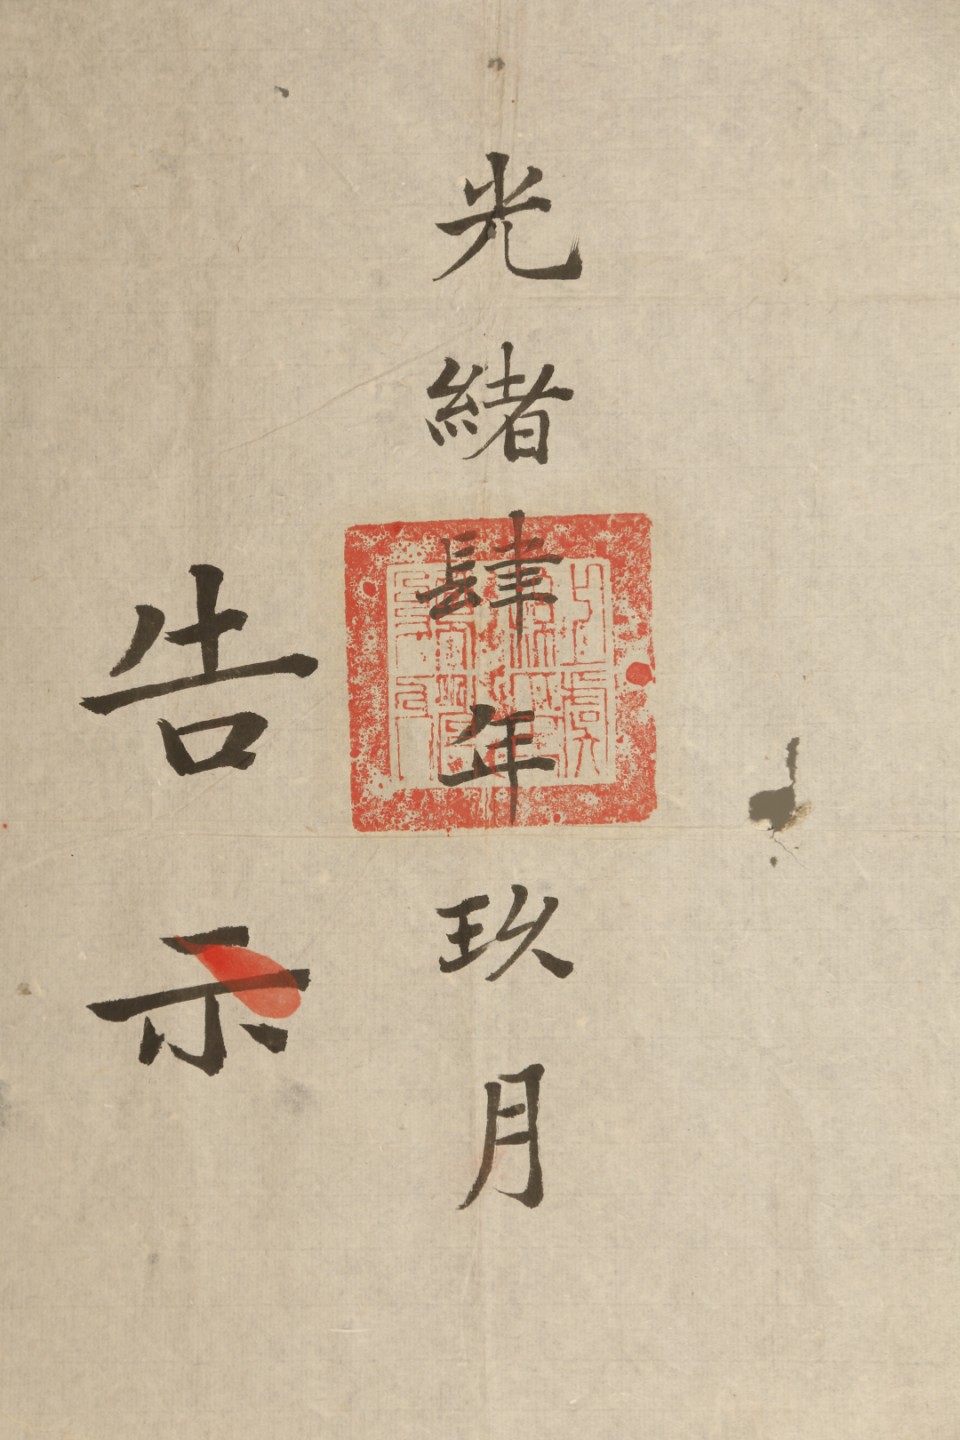 光緒肆年玖月
告示